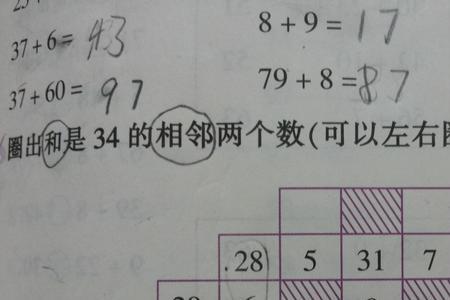 37+6=43
8+9=17
37+60=97
79+8=87
圈出和是34的相邻两个数(可以左右
.28 5 31 7